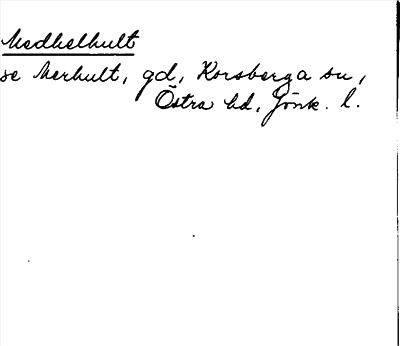 Medhelhult
se Merhult, gd, Korsberga sn,
Östra hd, Jönk. l.